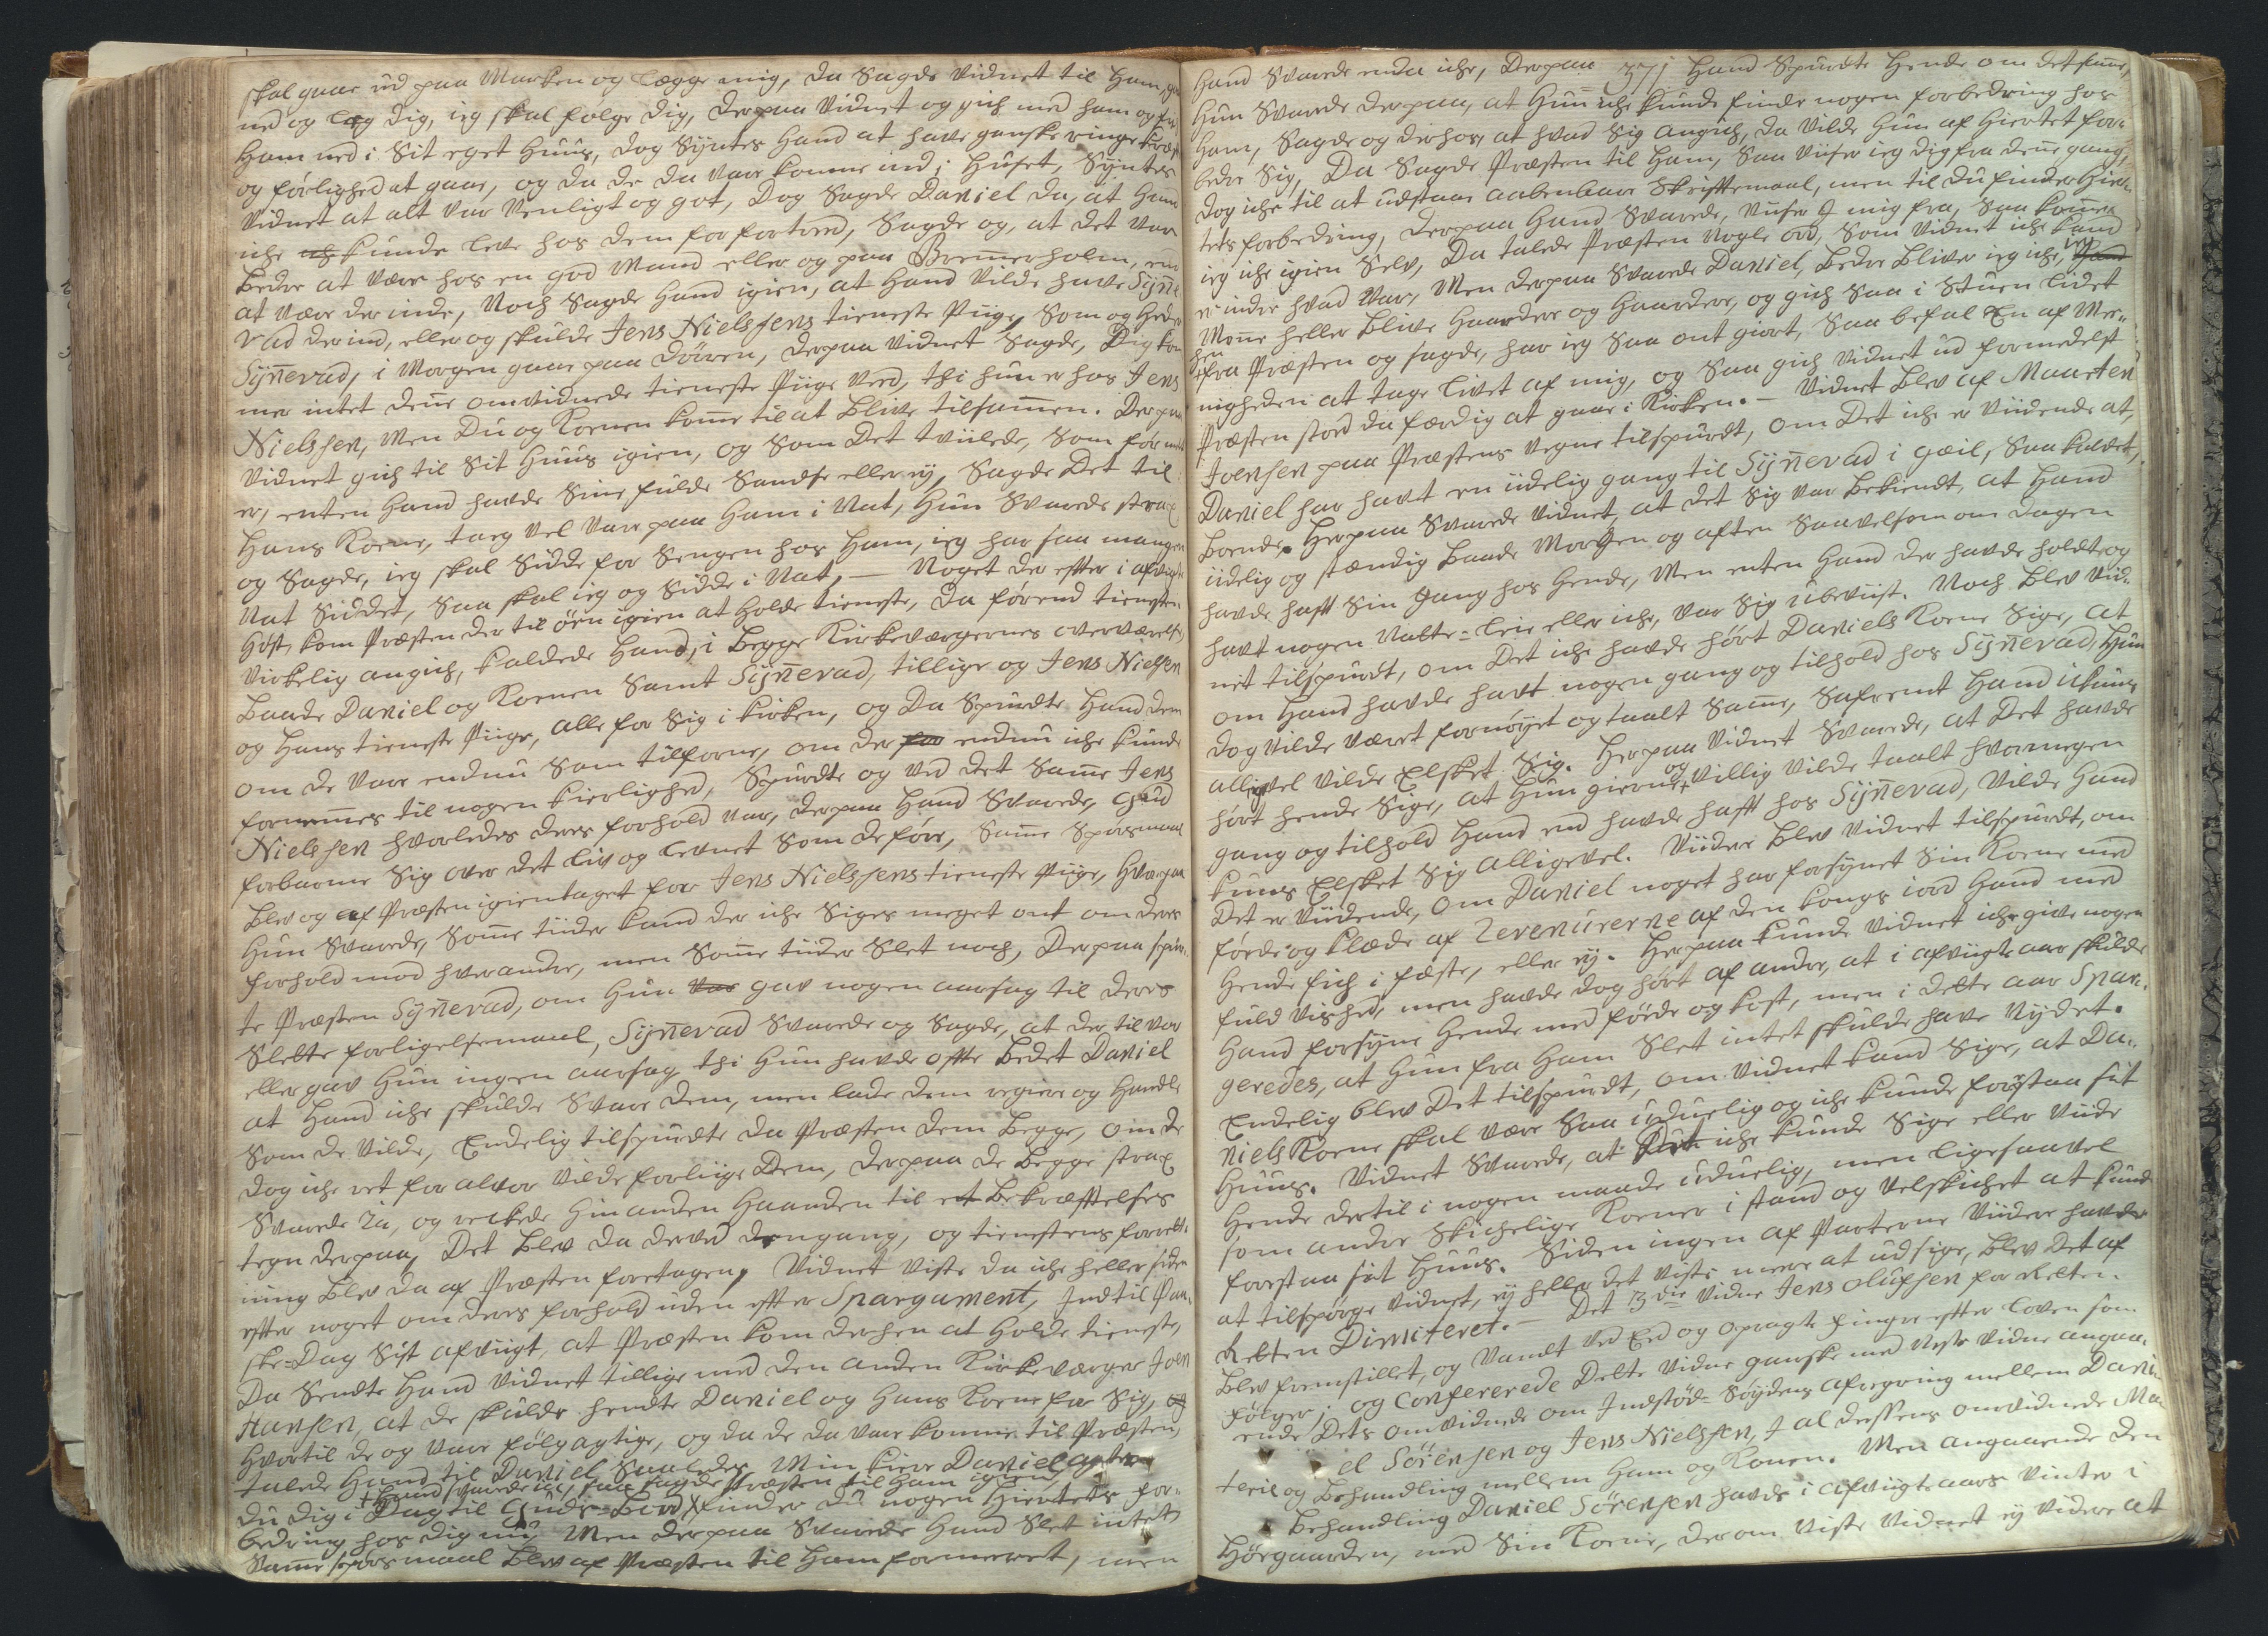 skal gaae ud paa Marken og lægge mig, da Sagde Vidnet til Ham, gak
ned og læg dig, ieg skal følge dig, derpaa Vidnet og gich med ham og
Ham ned i Sit eget Huus, dog Syntes Hand at have ganske ringe
og førlighed at gaae, og da de da Vare komne ind i Huset, Syntes
Vidnet at alt var Venligt og got, Dog Sagde Daniel da, at Hand
iche kunde leve hos dem for fortred, Sagde og, at det var
Bedre at være hos en god Mand eller og paa Bremerholm, end
at være der inde, Noch Sagde Hand igien, at Hand Vilde have Syñe-
vad derind, eller og skulde Jens Nielssens tieneste Piige, Som og Heder
Syñevad, i Morgen gaae paa døren, derpaa Vidnet Sagde, Dig kom-
mer intet deñe omvidnede tieneste Piige Ved, thi hun er hos Jens
Nielssen, Men Du og Konen kome til at Blive tilsamen. Derpaa
Vidnet gich til Sit Huus igien, og Som Det tviilede, Som før
er, enten Hand havde Sine fulde Sandse eller ey, Sagde Det til
Hans Kone, targ vel Vare paa Ham i Nat, Hun Svarede strax
og Sagde, ieg skal Sidde for Sengen hos Ham, ieg har saa mangen
Nat Siddet, Saa skal ieg og Sidde i Nat, — Noget der efter i afvigte
Høst, kom Præsten der til øen igien at Holde tieneste, da førend tienesten
Virkelig angich, kaldede Hand, i Begge Kirkeværgernes overværelse,
Baade Daniel og Konen Samt Syñevad, tillige og Jens Nielssen
og Hans tieneste Piige, alle for Sig i kirken, og Da Spurdte Hand dem
om de Vare endnu Som tilforne, om der for endnu iche kunde
fornemmes til nogen kierlighed, Spurdte og ved det Same Jens
Nielssen hvorledes deres forhold var, derpaa Hand Svarede, Gud
forbarme Sig over det liv og levnet Som de føre, Same Spørsmaal
Blev og af Præsten igientaget for Jens Nielssens tieneste Piige, Hvorpaa
Hun Svarede, Some tiider kand der iche Siges meget ont om deres
forhold mod hverandre, men Some tiider Slet noch, Derpaa spur-
te Præsten Syñevad, om Hun var gav nogen aarsag til deres
Slette forligelsemaal, Syñevad Svarede og Sagde, at der til var
eller gav Hun ingen aarsag, thi Hun havde ofte Bedet Daniel
at Hand iche skulde Svare dem, men lade dem regiere og Handle
Som de Vilde, Endelig tilspurdte da Præsten dem Begge, om de
dog iche ret for alvor Vilde forliige Dem, derpaa de Begge strax
Svarede Ja, og rechede Hinanden Haanden til et Bekræftelses
tegn derpaa, Det Blev da derved dengang, og tienestens forrett-
ning Blev da af Præsten foretagen, Vidnet Viste da iche heller siden
efter noget om deres forhold uden efter Spargument, Indtil Paa-
ske-Dag Sist afvigt, at Præsten kom derhen at Holde tieneste,
Da Sendte Hand Vidnet tillige med den anden Kirkeværger Joen
Hansen, at de skulde hendte Daniel og Hans Kone for Sig, og
Hvortil de og Vare følgagtige, og da de da Vare komne til Præsten,
talede Hand til Daniel Saaledes, Min kiere Daniel agter
+ Hand svarede ia, saa sagde Præsten til Ham igien,
du dig i Dag til Guds-Bord + finder du nogen Hiertets for-
bedring hos dig nu? Men derpaa Svarede Hand Slet intet
Same spørsmaal Blev af Præsten til Ham formeret, men
371
Hand Svarede enda iche, Derpaa Hand Spurdte Hende om det same,
Hun Svarede derpaa, at Hun iche kunde finde nogen forbedring hos
Ham, Sagde og derhos, at hvad Sig angich, da Vilde Hun af Hiertet for-
bedre Sig, Da Sagde Præsten til Ham, Saa Viiser ieg dig fra deñe gang,
dog iche til at udstaae aabenbare Skriftemaal, men til du finder Hier-
tets forbedring, derpaa Hand Svarede, Viiser I mig fra, Saa komer
ieg iche igien Selv, Da talede Præsten Nogle ord, Som Vidnet iche kand
erindre hvad var, Men derpaa Svarede Daniel, Bedre Bliver ieg iche, ieg
Mone heller Blive Haardere og Haardere, og gich Saa i Stuen lidet
hen fra Præsten og sagde, har ieg Saa ont giort, Saa befal En af Me-
nigheden at tage livet af mig, og Saa gich Vidnet ud formedelst
Præsten stod da færdig at gaae i Kirken. — Vidnet Blev af Maarten
Joensen paa Præstens Vegne tilspurdt, om Det iche er Viidende at,
Daniel har havt en iidelig gang til Syñevad i Gæil, Saa kaldet,
Boende. Herpaa Svarede Vidnet, at det Sig var Bekiendt, at Hand
iidelig og stændig Baade Morgen og aften Saavelsom om dagen
havde haft Sin Gang hos Hende, Men enten Hand der havde holdt og
havt nogen Natte-leie eller iche, var Sig ubeviist. Noch Blev Vid-
net tilspurdt, om Det iche havde hørt Daniels Kone Sige, at
om Hand havde havt nogen gang og tilhold hos Syñevad, Hun
dog Vilde været fornøyet og taalt Same, Safremt Hand ikuns
alligevel Vilde Elsket Sig. Herpaa Vidnet Svarede, at Det havde
hørt Hende Sige, at Hun gierne og Villig Vilde taalt hvormegen
gang og tilhold Hand end havde haft hos Syñevad, Vilde Hand
kuns Elsket Sig alligevel. Viidere Blev Vidnet tilspurdt, om
Det er Viidende, om Daniel noget har forsynet Sin Kone med
førde og klæde af Revenuerne af den kongs iord Hand med
Hende fich i fæste, eller ey. Herpaa kunde Vidnet iche give nogen
fuld Vished, men havde dog hørt af andre, at i afvigte aar skulde
Hand forsyne Hende med førde og kost, men i dette aar Spar-
geredes, at Hun fra Ham Slet intet skulde have Nydet.
Endelig blev Det tilspurdt, om Vidnet kand Sige, at Da-
niels Kone skal være Saa uduelig og iche kunde forstaa sit
Huus. Vidnet Svarede, at Det iche kunde Sige eller Viide
Hende dertil i nogen maade uduelig, men ligesaavel
som andre Skichelige Koner i stand og Velskichet at kunde
forstaa sit Huus. Siden ingen af Parterne Viidere havde
at tilspørge Vidnet, ey heller det Viste mere at udsige, blev Det af
Retten Dimiteret. — Det 3die Vidne Jens Olufsen for Retten
Blev fremstillet, og Vandt Ved Eed og opragte fingre efter loven som
følger; og Confererede Dette Vidne ganske med Neste Vidne angaa-
ende Dets omvidnede om Indstød-Søydens afregning mellem Dani-
el Sørensen og Jens Nielssen, I al dessens omvidnede Ma-
terie og Behandling mellem Ham og Konen. Men angaaende den
Behandling Daniel Sørensen havde i afvigte aars Vinter i
Høegaarden, med Sin Kone, derom Viste Vidnet ey Videre at